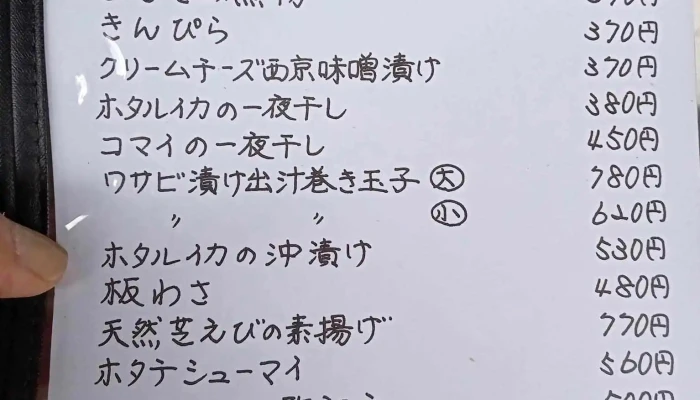 きんぴら 370円
クリームチーズ西京味噌漬け 370円
ホタルイカの一夜干し 380円
コマイの一夜干し 450円
ワサビ漬け出汁巻き玉子 大 780円
〃 〃 小 620円
ホタルイカの沖漬け 530円
板わさ 480円
天然芝えびの素揚げ 770円
ホタテシューマイ 560円